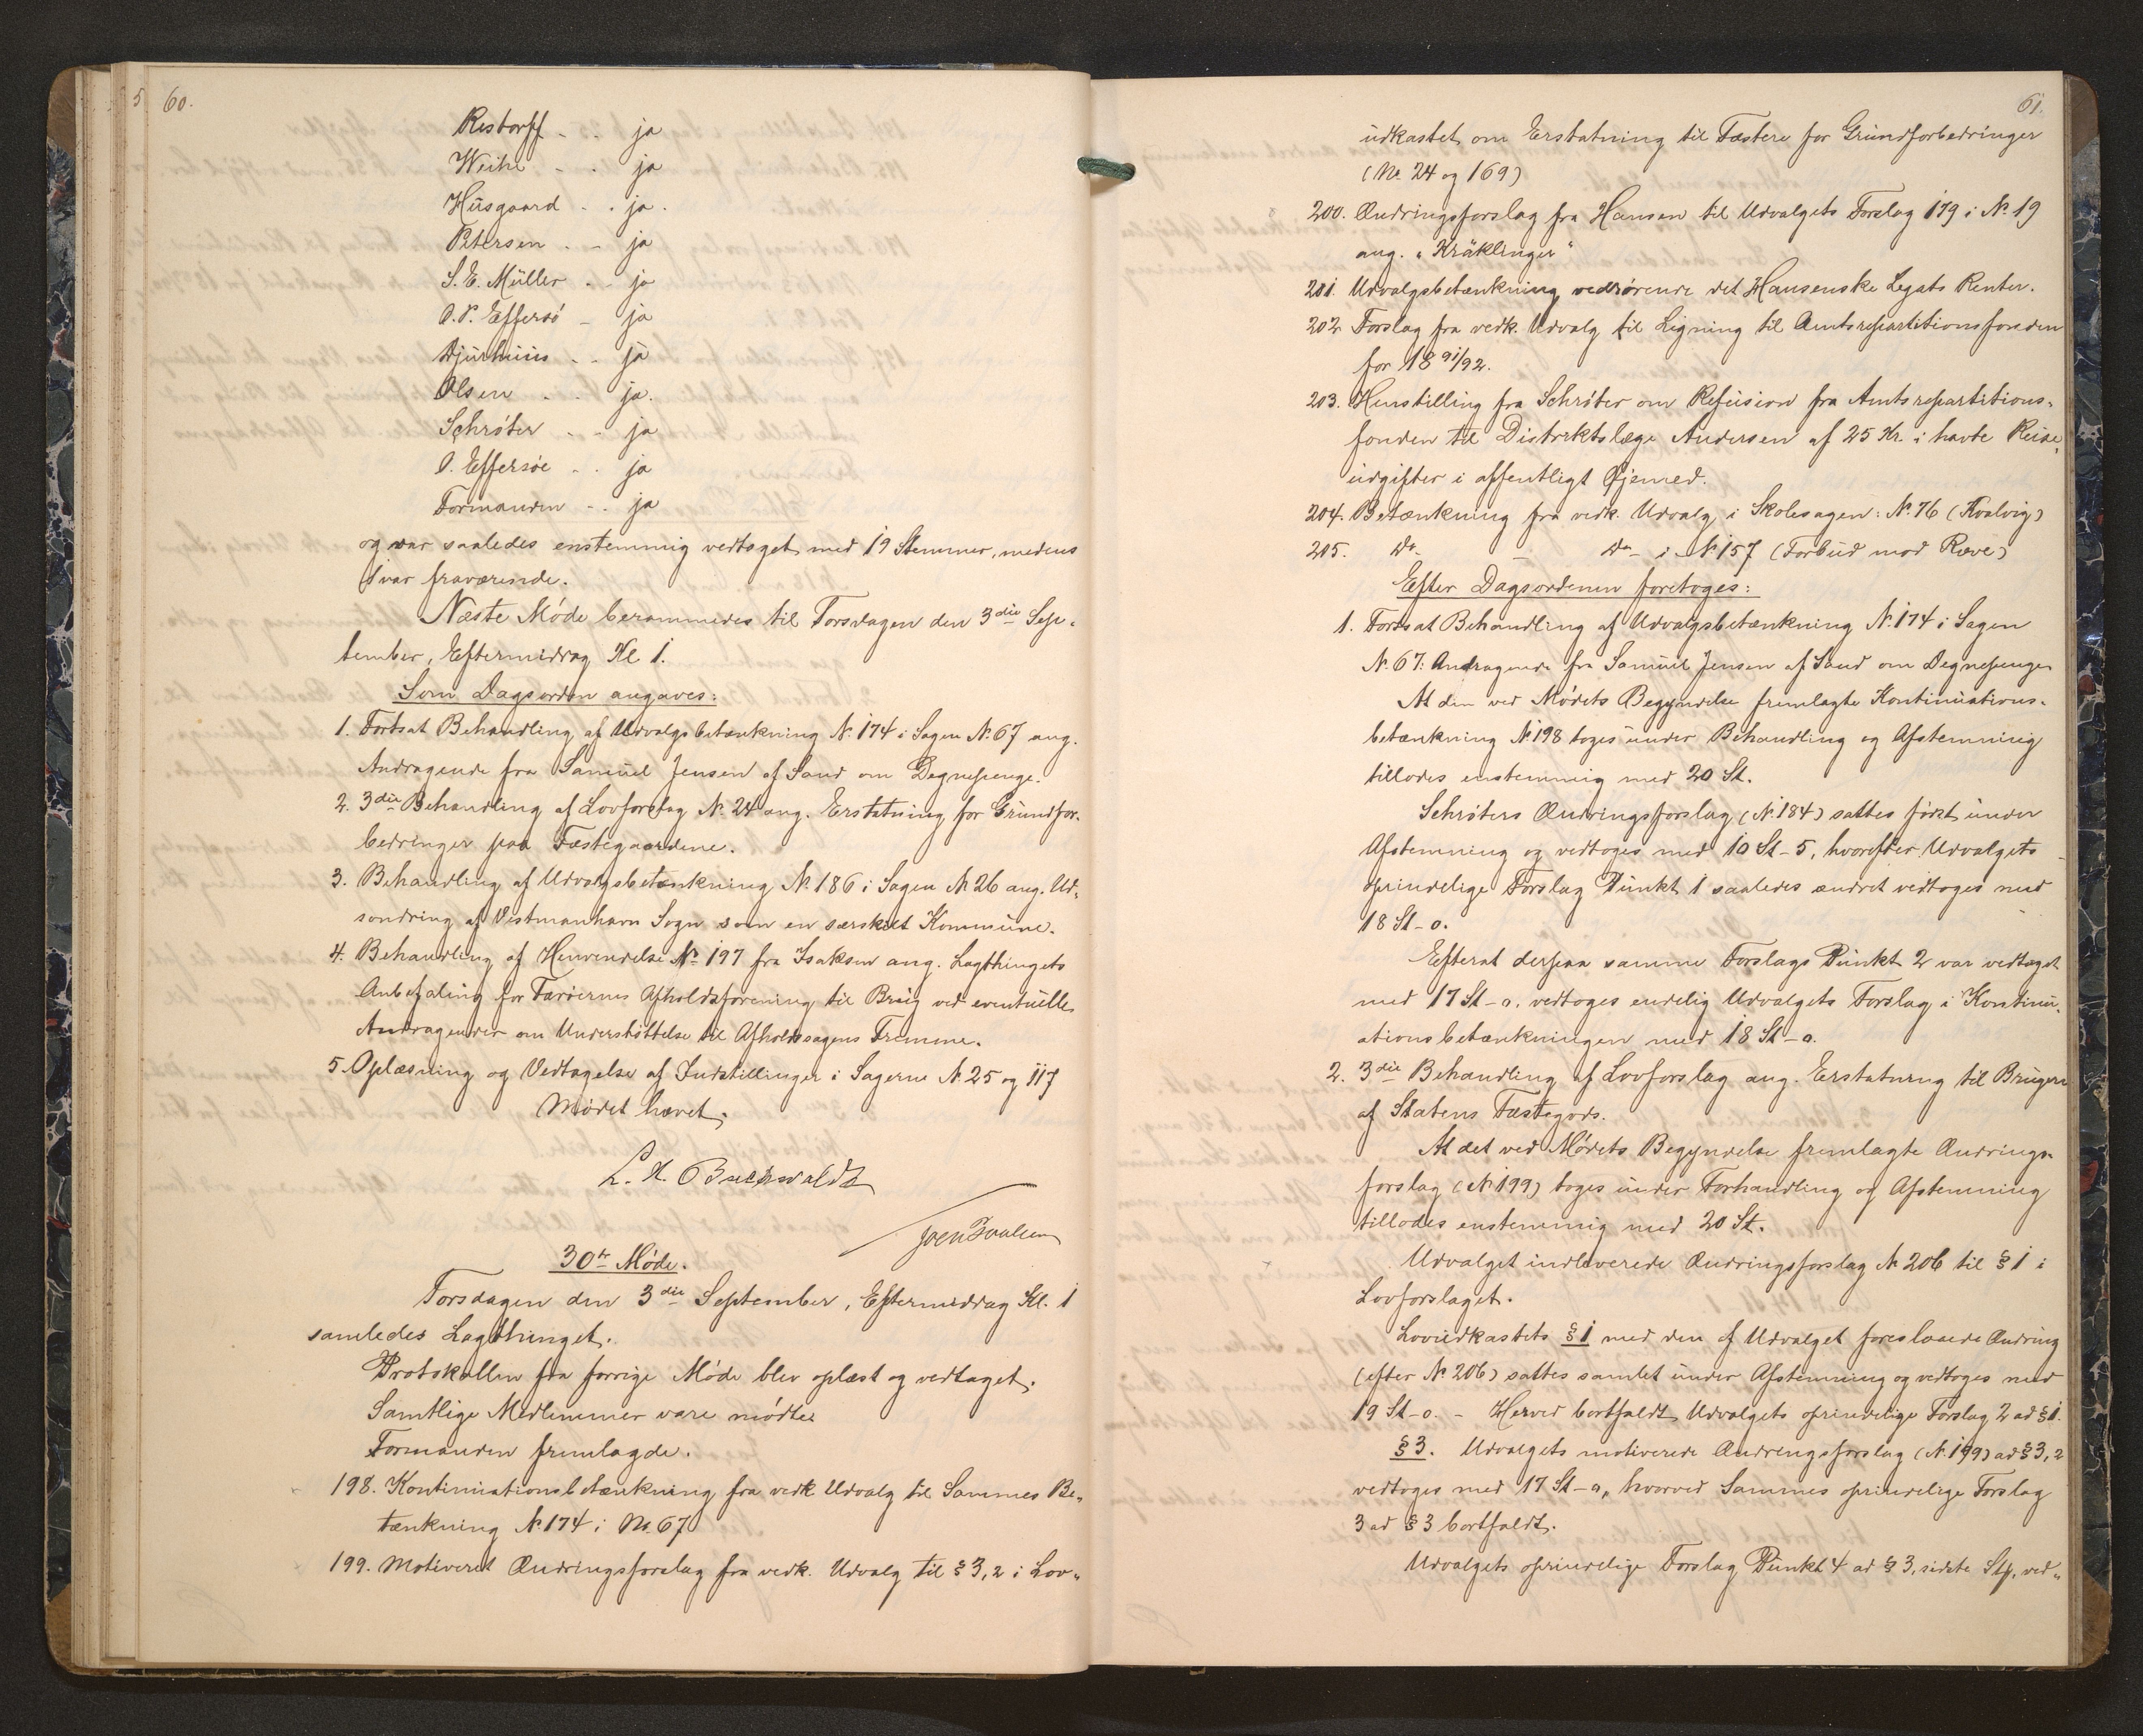 60.
Restorff - - ja
Weihe - - ja
Husgaard - - ja.
Petersen - - ja
S. E. Müller - - ja
O. P. Effersö - ja
Djurhuus - - ja
Olsen - - ja.
Schröter - - ja
O. Effersöe - - ja
Formanden - - ja
og var saaledes enstemmig vedtaget med 19 Stemmer, medens
1 var fraværende.
Næste Möde berammedes til Torsdagen den 3die Sep-
tember, Eftermiddag Kl. 1.
Som Dagsorden angaves:
1. Fortsat Behandling af Udvalgsbetænkning N. 174 i Sagen N. 67 ang.
Andragende fra Samuel Jensen af Sand om Degnepenge.
2. 3die Behandling af Lovforslag N. 24 ang. Erstatning for Grundfor-
bedringer paa Fæstegaardene.
3. Behandling af Udvalgsbetænkning N. 186 i Sagen N. 26 ang. Ud-
sondring af Vestmanhavn Sogn som en særskilt Kommune.
4. Behandling af Henvendelse N. 197 fra Isaksen ang. Lagthingets
Anbefaling for Færöernes Afholdsforening til Brug ved eventuelle
Andragender om Understöttelse til Afholdssagens Fremme.
5. Oplæsning og Vedtagelse af Indstillinger i Sagerne N. 25 og 117
Mödet hævet.
L. H. Buchwaldt
Joen Poulsen
30te Möde.
Torsdagen den 3die September, Eftermiddag Kl. 1
samledes Lagthinget.
Protokollen fra forrige Möde blev oplæst og vedtaget.
Samtlige Medlemmer vare mödte.
Formanden fremlagde.
198. Kontinuationsbetænkning fra vedk. Udvalg til Sammes Be-
tænkning N. 174 i No. 67
199. Motiveret Ændringsforslag fra vedk. Udvalg til § 3, 2 i Lov-
61.
udkastet om Erstatning til Fæstere for Grundforbedringer
(No. 24 og 169)
200. Ændringsforslag fra Hansen til Udvalgets Forslag 179 i N. 19
ang. "Kräklinger"
201. Udvalgsbetænkning vedrörende det Hansenske Legats Renter.
202 Forslag fra vedk. Udvalg til Ligning til Amtsrepartitionsfonden
for 1891/92.
203. Henstilling fra Schröter om Refusion fra Amtsrepartitions-
fonden til Distriktslæge Andersen af 25 Kr. i havte Reise-
udgifter i offentligt Öjemed.
204. Betænkning fra vedk. Udvalg i Skolesagen: N. 76 (Kvalvig)
205. Do - Do - i N. 157 (Forbud mod Ræve)
Efter Dagsordenen foretoges:
1. Fortsat Behandling af Udvalgsbetænkning N. 174 i Sagen
N. 67: Andragende fra Samuel Jensen af Sand om Degnepenge
At den ved Mödets Begyndelse fremlagte Kontinuations-
betænkning N. 198 toges under Behandling og Afstemning
tillodes enstemmig med 20 St.
Schröters Ændringsforslag (N. 184) sattes först under
Afstemning og vedtoges med 10 St - 5, hvorefter Udvalgets
oprindelige Forslag Punkt 1 saaledes ændret vedtoges med
18 St - 0.
Efterat derpaa samme Forslags Punkt 2 var vedtaget
med 17 St - 0. vedtoges endelig Udvalgets Forslag i Kontinu-
ationsbetænkningen med 18 St - 0.
2. 3die Behandling af Lovforslag ang. Erstatning til Brugere
af Statens Fæstegods.
At det ved Mödets Begyndelse fremlagte Ændrings-
forslag (N. 199) toges under Forhandling og Afstemning
tillodes enstemmig med 20 St.
Udvalget indleverede Ændringsforslag N. 206 til § 1 i
Lovforslaget.
Lovudkastets § 1 med den af Udvalget foreslaaede Ændring
(efter N. 206) sattes samlet under Afstemning og vedtoges med
19 St - 0. - Herved bortfaldt Udvalgets oprindelige Forslag 2 ad § 1.
§ 3. Udvalgets motiverede Ændringsforslag (N. 199) ad § 3, 2
vedtoges med 17 St - 0, hvorved Sammes oprindelige Forslag
3 ad § 3 bortfaldt.
Udvalgets oprindelige Forslag Punkt 4 ad § 3, sidste Stk. ved-